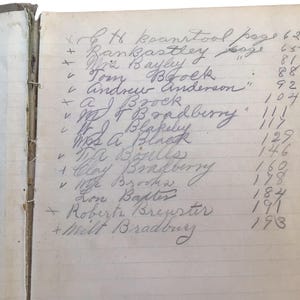 x G H Boanstool page 62
+ Ran Bastley page 65
+ Woz Bayley " 81
v Tom Brock " 88
v Andrew Anderson " 92
x A J Brock 104
v W T Bradberry " 111
v W J Blakely 117
Mrs A Black 129
v W A Bouls 146
+ Clay Bradberry 160
v Wm Brooks 178
Lon Baxter 184
x Robert Brewster 191
+ Milt Bradbury 193